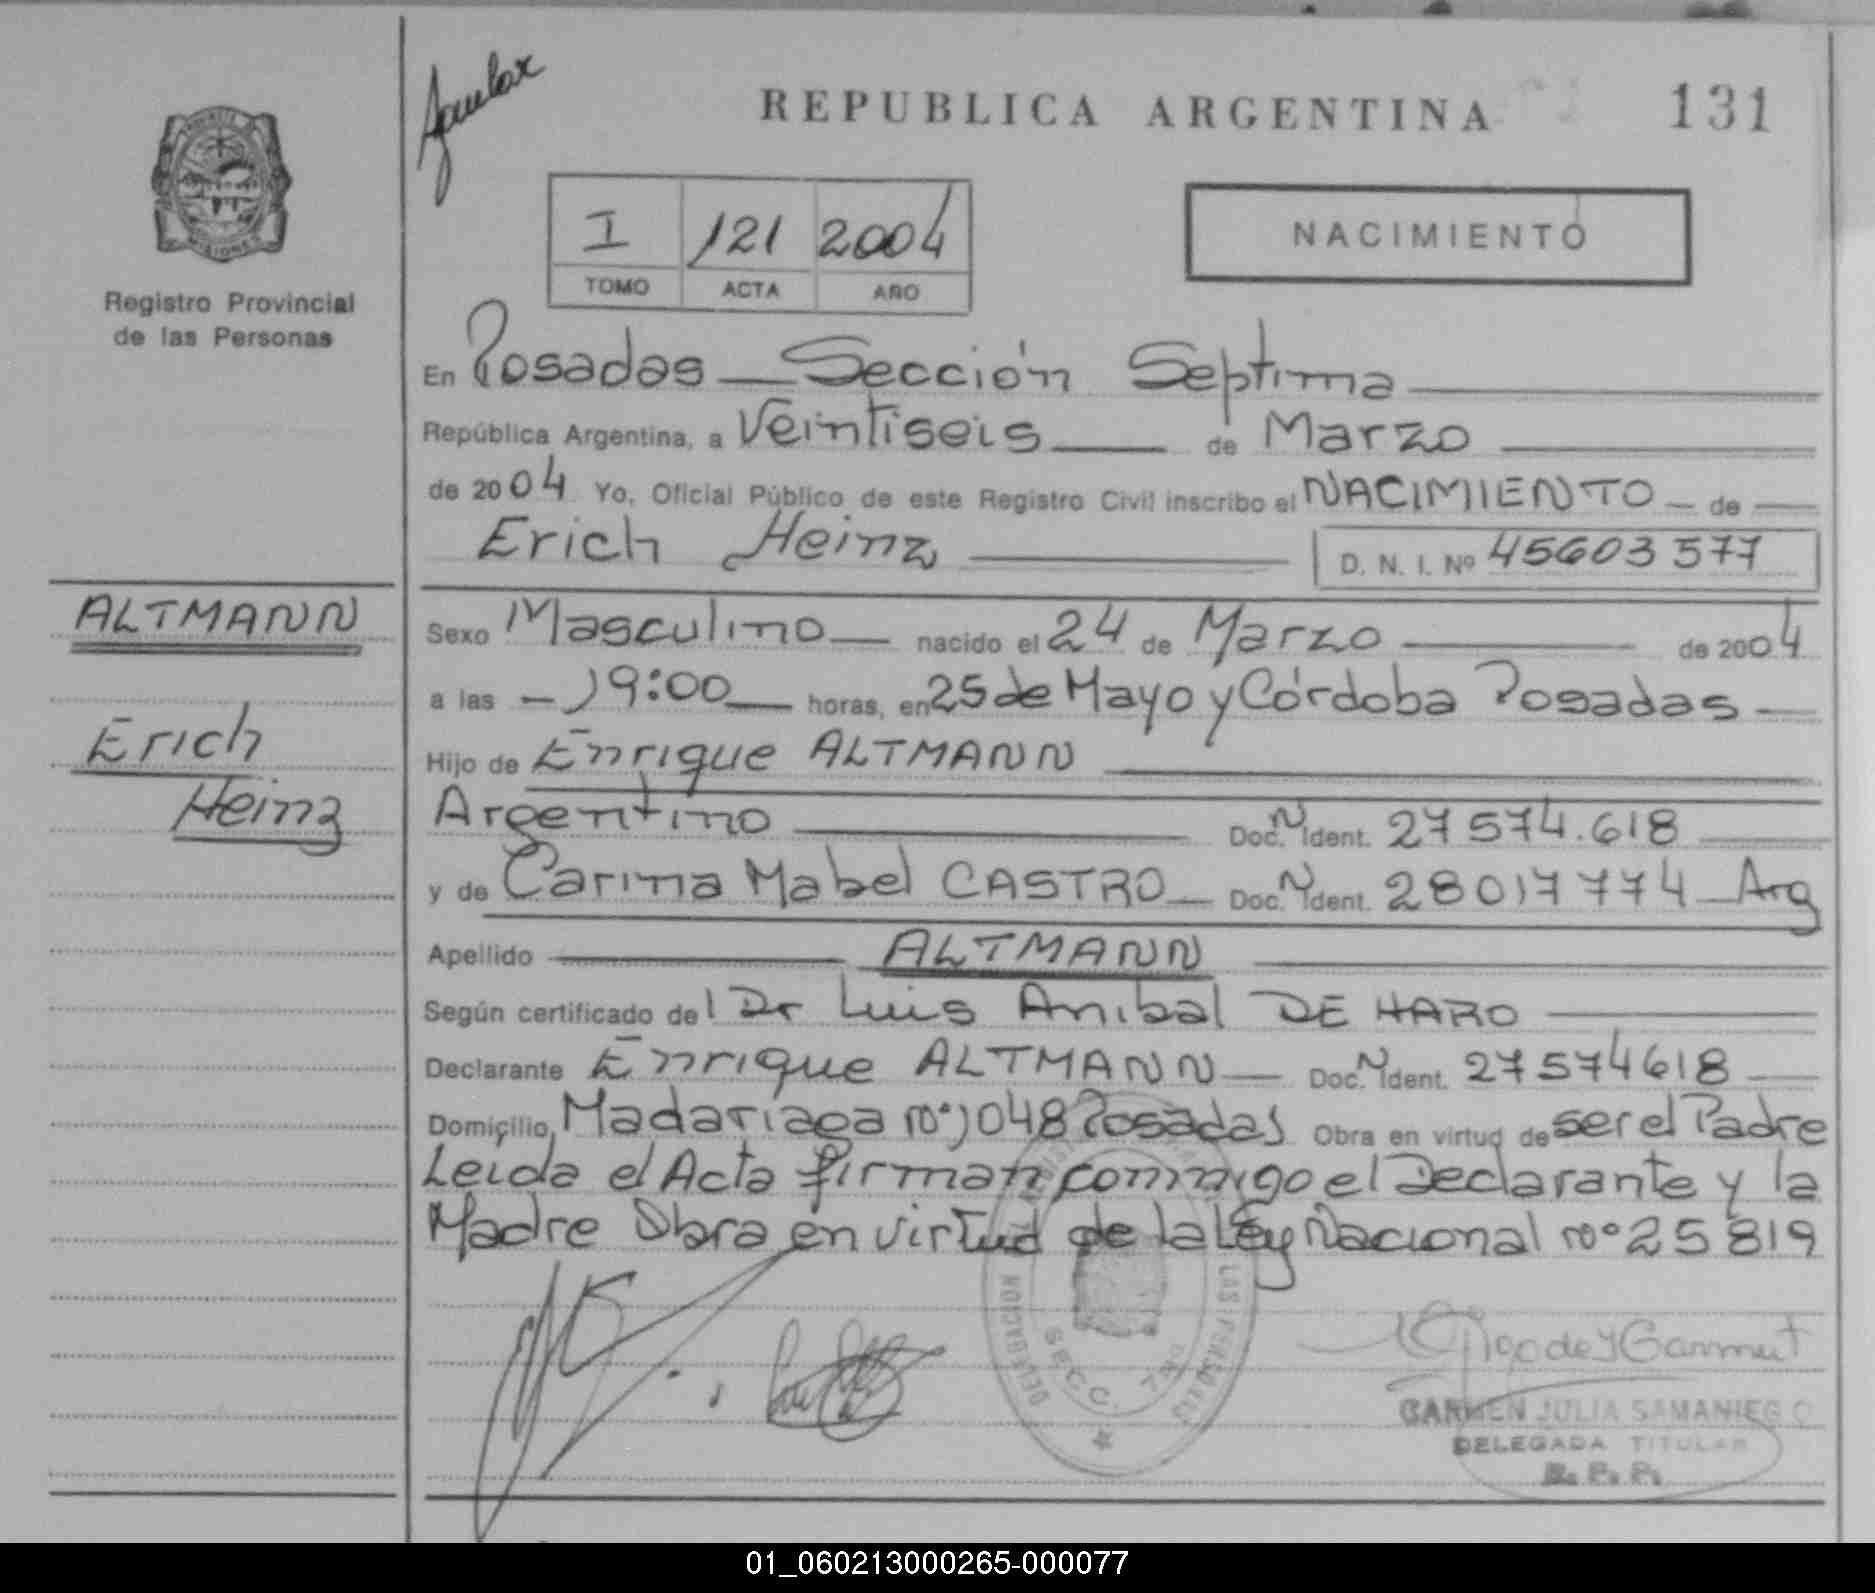 Aguilar
REPUBLICA ARGENTINA 131
MISIONES
Registro Provincial
de las Personas
I 121 2004
TOMO ACTA AÑO
NACIMIENTO
En Posadas — Sección Septima
República Argentina, a Veintiseis de Marzo
de 2004 Yo, Oficial Público de este Registro Civil inscribo el NACIMIENTO de
Erich Heinz D. N. I. Nº 45603577
ALTMANN
Erich
Heinz
Sexo Masculino nacido el 24 de Marzo de 2004
a las 19:00 horas, en 25 de Mayo y Córdoba Posadas
Hijo de Enrique ALTMANN
Argentino Doc. N Ident. 27574.618
y de Carina Mabel CASTRO Doc. N Ident. 28017774 Arg
Apellido ALTMANN
Según certificado del Dr Luis Anibal DE HARO
Declarante Enrique ALTMANN Doc. N Ident. 27574618
Domicilio Madariaga nº 1048 Posadas Obra en virtud de ser el Padre
Leida el Acta firman conmigo el Declarante y la
Madre Obra en virtud de la Ley Nacional nº 25819
DELEGACION LAS PERSONAS
SECC. 7MA
CARMEN JULIA SAMANIEGO
DELEGADA TITULAR
R. P. P.
01_060213000265-000077